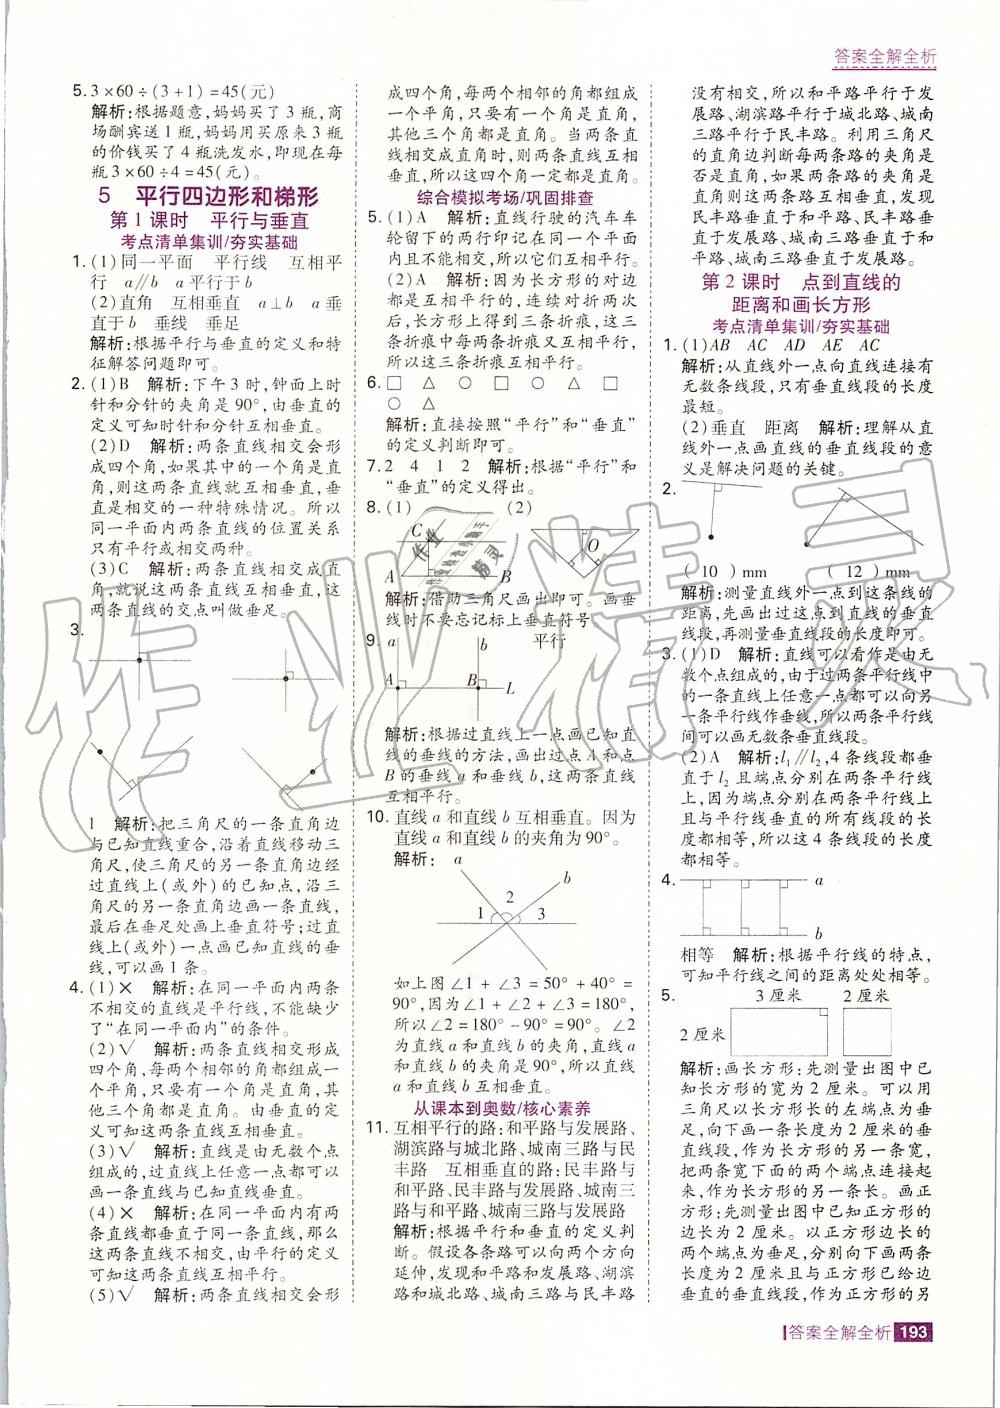 答案全解全析
5. 3×60÷(3+1)=45(元)
解析:根据题意,妈妈买了3瓶,商
场酬宾送1瓶,妈妈用买原来3瓶
的价钱买了4瓶洗发水,即现在每
瓶3×60÷4=45(元)。
5 平行四边形和梯形
第1课时 平行与垂直
考点清单集训/夯实基础
1. (1)同一平面 平行线 互相平
行 a∥b a平行于b
(2)直角 互相垂直 a⊥b a垂
直于b 垂线 垂足
解析:根据平行与垂直的定义和特
征解答问题即可。
2. (1)B 解析:下午3时,钟面上时
针和分针的夹角是90°,由垂直的
定义可知时针和分针互相垂直。
(2)D 解析:两条直线相交会形
成四个角,如果其中的一个角是直
角,则这两条直线就互相垂直,垂
直是相交的一种特殊情况。所以
同一平面内两条直线的位置关系
只有平行或相交两种。
(3)C 解析:两条直线相交成直
角,就说这两条直线互相垂直,这
两条直线的交点叫做垂足。
3.
1 解析:把三角尺的一条直角边
与已知直线重合,沿着直线移动三
角尺,使三角尺的另一条直角边经
过直线上(或外)的已知点,沿三
角尺的另一条直角边画一条直线,
最后在垂足处画上垂直符号;过直
线上(或外)一点画已知直线的垂
线,可以画1条。
4. (1)× 解析:在同一平面内两条
不相交的直线是平行线,不能缺少
了“在同一平面内”的条件。
(2)√ 解析:两条直线相交形成
四个角,每两个相邻的角都组成一
个平角,只要有一个角是直角,其
他三个角都是直角。由垂直的定
义可知这两条直线互相垂直。
(3)√ 解析:直线是由无数个点
组成的,过直线上任意一点都可以
画一条直线与已知直线垂直。
(4)× 解析:在同一平面内有两
条直线都垂直于同一条直线,那么
这两条直线不相交,由平行的定义
可知这两条直线互相平行。
(5)√ 解析:两条直线相交会形
成四个角,每两个相邻的角都组成
一个平角,只要有一个角是直角,
其他三个角都是直角。当两条直
线相交成直角时,则两条直线互相
垂直,所以这四个角一定都是直角。
综合模拟考场/巩固排查
5. (1)A 解析:直线行驶的汽车车
轮留下的两行印记在同一个平面
内且不能相交,所以它们互相平行。
(2)A 解析:因为长方形的对边
都是互相平行的,连续对折两次
后,长方形上得到三条折痕,这三
条折痕中每两条折痕又互相平行,
所以这三条折痕互相平行。
6. □ △ ○ □ ○ △ □
○ △
解析:直接按照“平行”和“垂直”
的定义判断即可。
7. 2 4 1 2 解析:根据“平行”和
“垂直”的定义得出。
8. (1) (2)
C
A B
O
解析:借助三角尺画出即可。画垂
线时不要忘记标上垂直符号
9. a b 平行
A B L
解析:根据过直线上一点画已知直
线的垂线的方法,画出过点A和点
B的垂线a和垂线b,这两条直线
互相平行。
10. 直线a和直线b互相垂直。因为
直线a和直线b的夹角为90°。
解析: a
b
1 2 3
如上图∠1+∠3=50°+40°=
90°,因为∠1+∠2+∠3=180°,
所以∠2=180°-90°=90°。∠2
为直线a和直线b的夹角,直线a
和直线b的夹角是90°,所以直线
a和直线b互相垂直。
从课本到奥数/核心素养
11. 互相平行的路:和平路与发展路、
湖滨路与城北路、城南三路与民
丰路 互相垂直的路:民丰路与
和平路、民丰路与发展路、城南三
路与和平路、城南三路与发展路
解析:根据平行和垂直的定义判
断。假设各条路可以向两个方向
延伸,发现和平路和发展路、湖滨
路和城北路、城南三路与民丰路
没有相交,所以和平路平行于发
展路、湖滨路平行于城北路、城南
三路平行于民丰路。利用三角尺
的直角边判断每两条路的夹角是
否是直角,如果两条路的夹角是
直角则这两条路互相垂直,发现
民丰路垂直于和平路、民丰路垂
直于发展路、城南三路垂直于和
平路、城南三路垂直于发展路。
第2课时 点到直线的
距离和画长方形
考点清单集训/夯实基础
1. (1)AB AC AD AE AC
解析:从直线外一点向直线连接有
无数条线段,只有垂直线段的长度
最短。
(2)垂直 距离 解析:理解从直
线外一点画直线的垂直线段的意
义是解决问题的关键。
2.
( 10 )mm ( 12 )mm
解析:测量直线外一点到这条线的
距离,先画出过这点到直线的垂直
线段,再测量垂直线段的长度即可。
3. (1)D 解析:直线可以看作是由无
数个点组成的,由于过两条平行线中
的一条直线上任意一点都可以向另
一条平行线作垂线,所以两条平行线
间可以画无数条垂直线段。
(2)A 解析:l₁∥l₂,4条线段都垂
直于l₂且端点分别在两条平行线
上,因为端点分别在两条平行线上
且与平行线垂直的所有线段的长
度都相等,所以这4条线段的长度
都相等。
4. a
b
相等 解析:根据平行线的特点,
可知平行线之间的距离处处相等。
5. 3厘米 2厘米
2厘米
解析:画长方形:先测量出图中已
知长方形的宽为2厘米。可以用
三角尺以长方形长的左端点为垂
足,向下画一条长度为2厘米的垂
直线段,作为长方形的另一条宽,
把两条宽下面的两个端点连接起
来,作为长方形的另一条长。画正
方形:先测量出图中已知正方形的
边长为2厘米。以正方形边长的
两个端点为垂足,分别向下画两条
长度为2厘米且与正方形已给边
垂直的垂直线段,作为正方形的另
答案全解全析 193
作业精灵